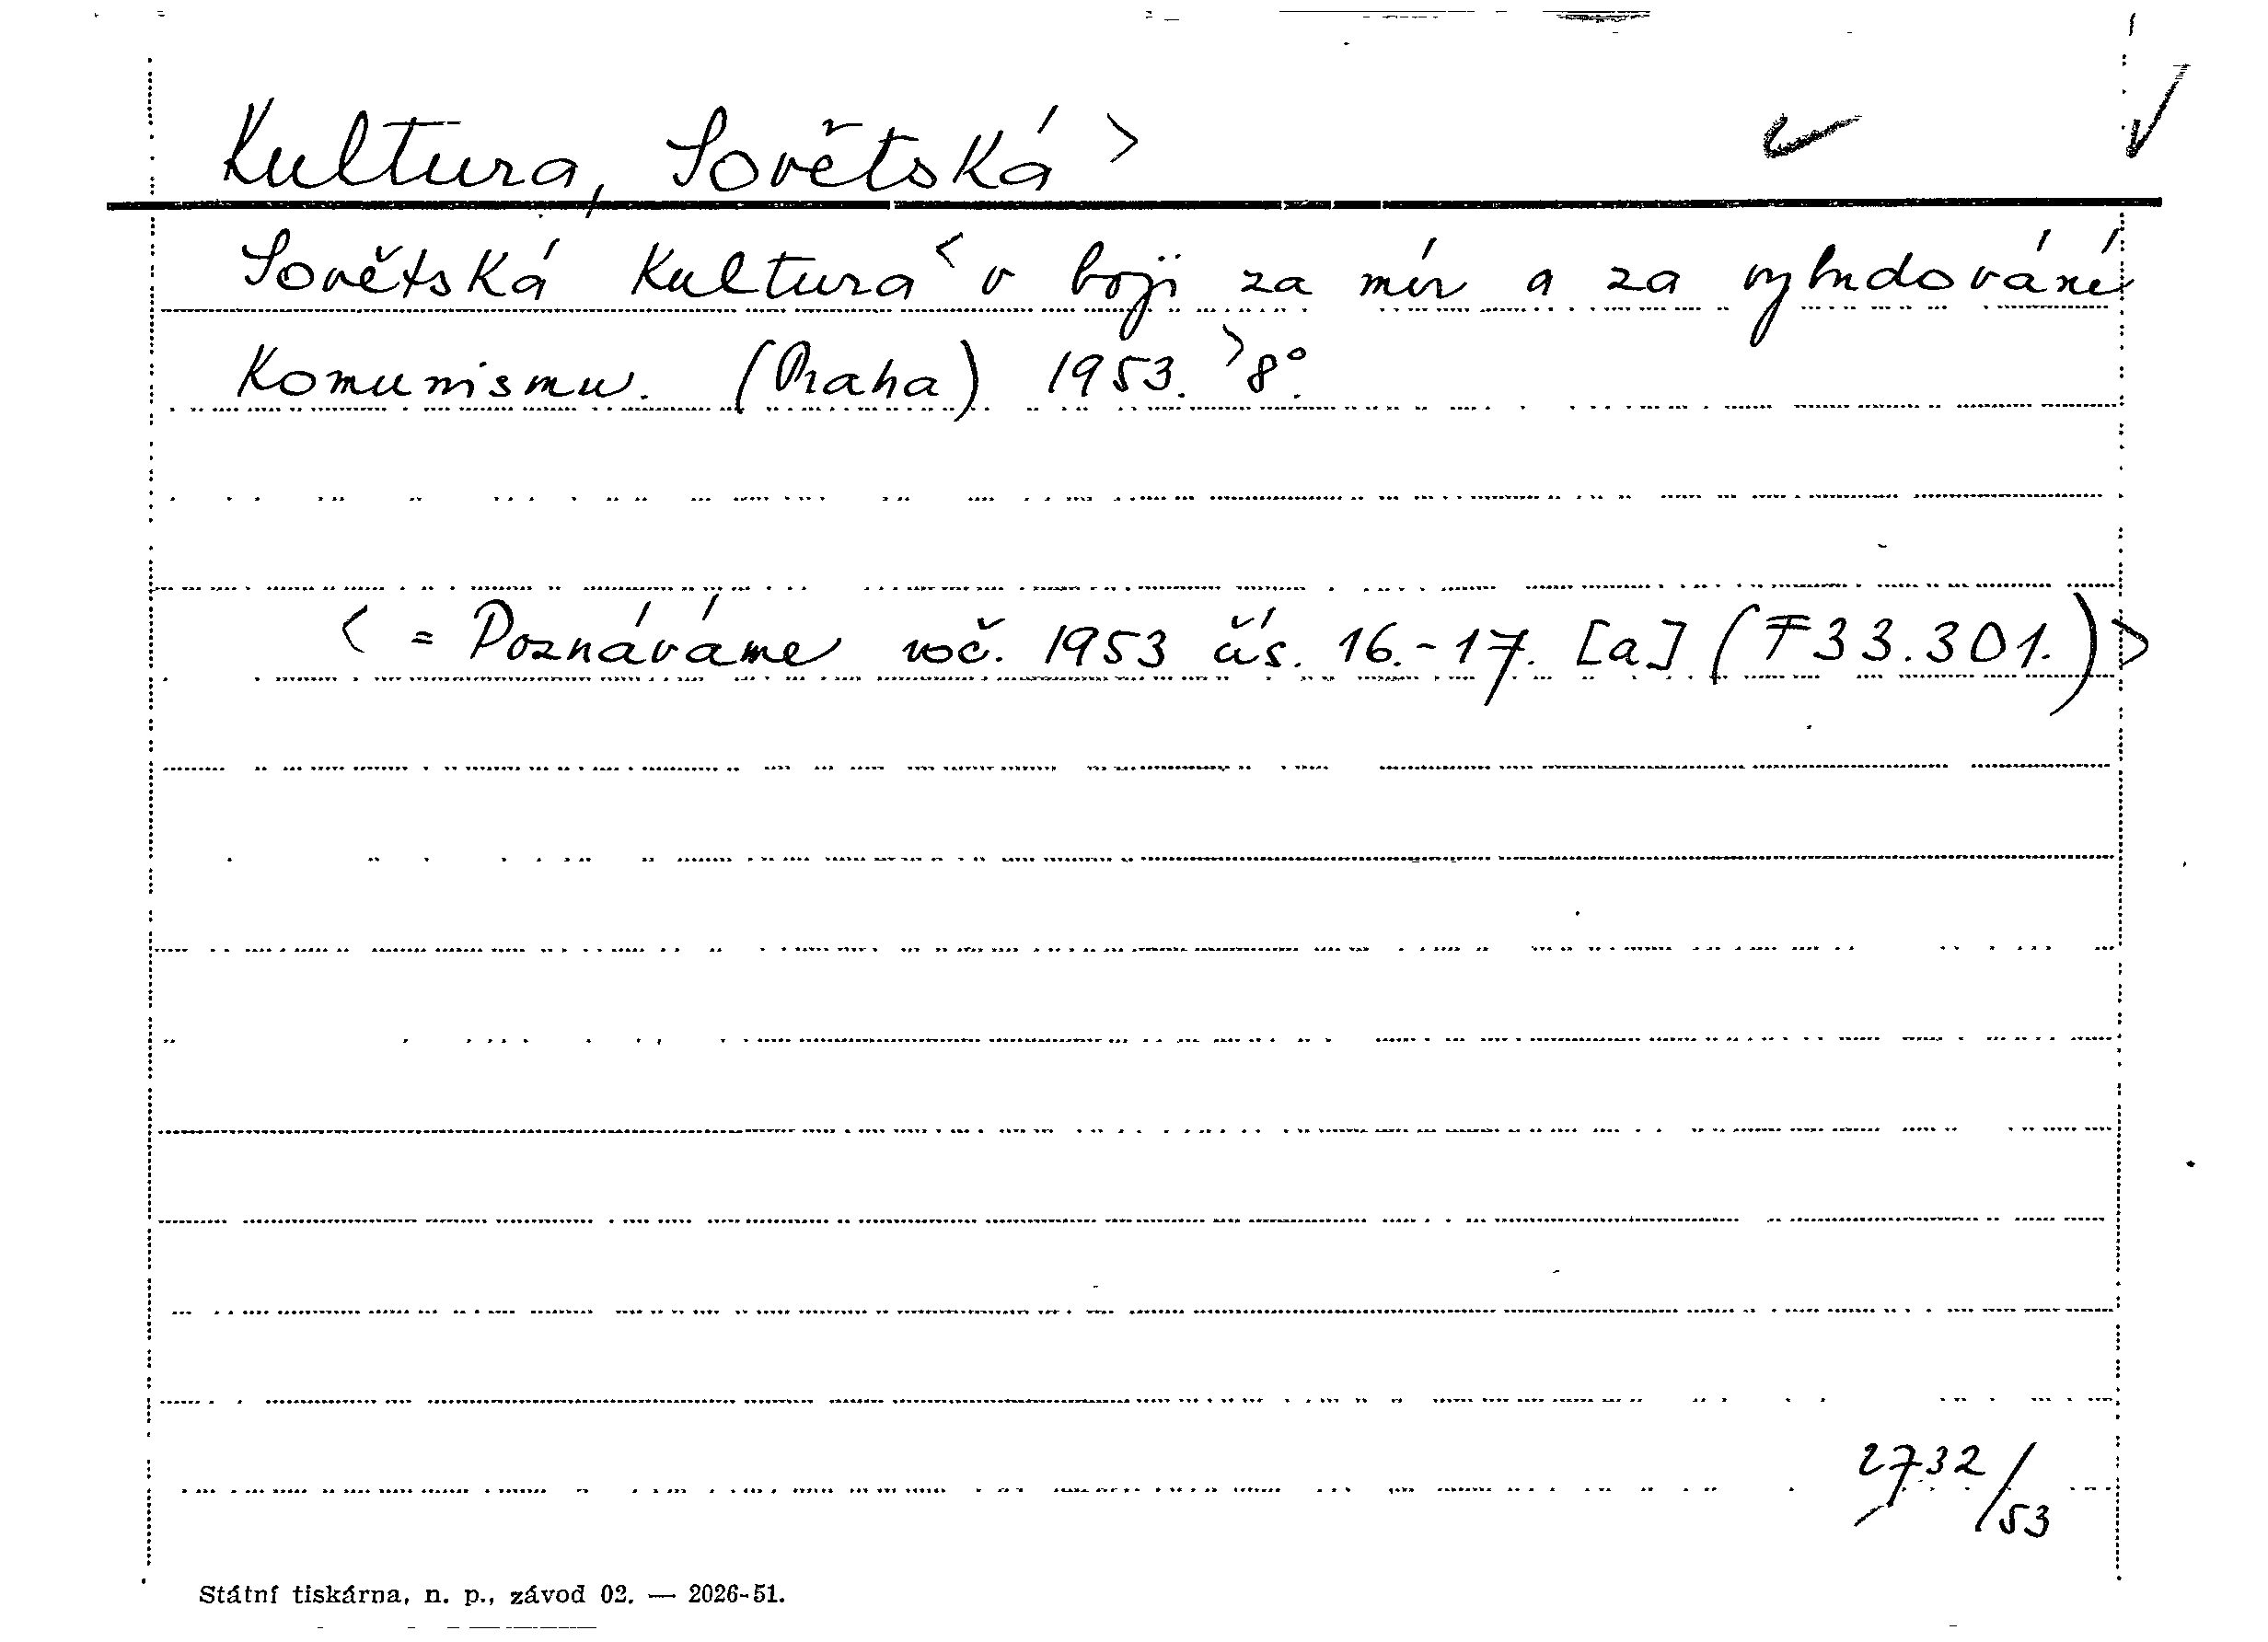 Kultura, Sovětská >
Sovětská kultura < v boji za mír a za vybudování
komunismu. (Praha) 1953. > 8°.
< = Poznáváme roč. 1953 čís. 16.-17. [a] (F33.301.) >
2732/53
Státní tiskárna, n. p., závod 02. — 2026-51.